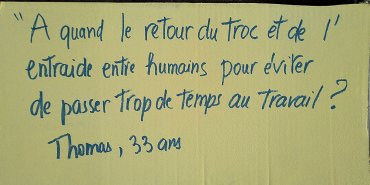 "A quand le retour du troc et de l'
entraide entre humains pour éviter
de passer trop de temps au travail ?
Thomas, 33 ans